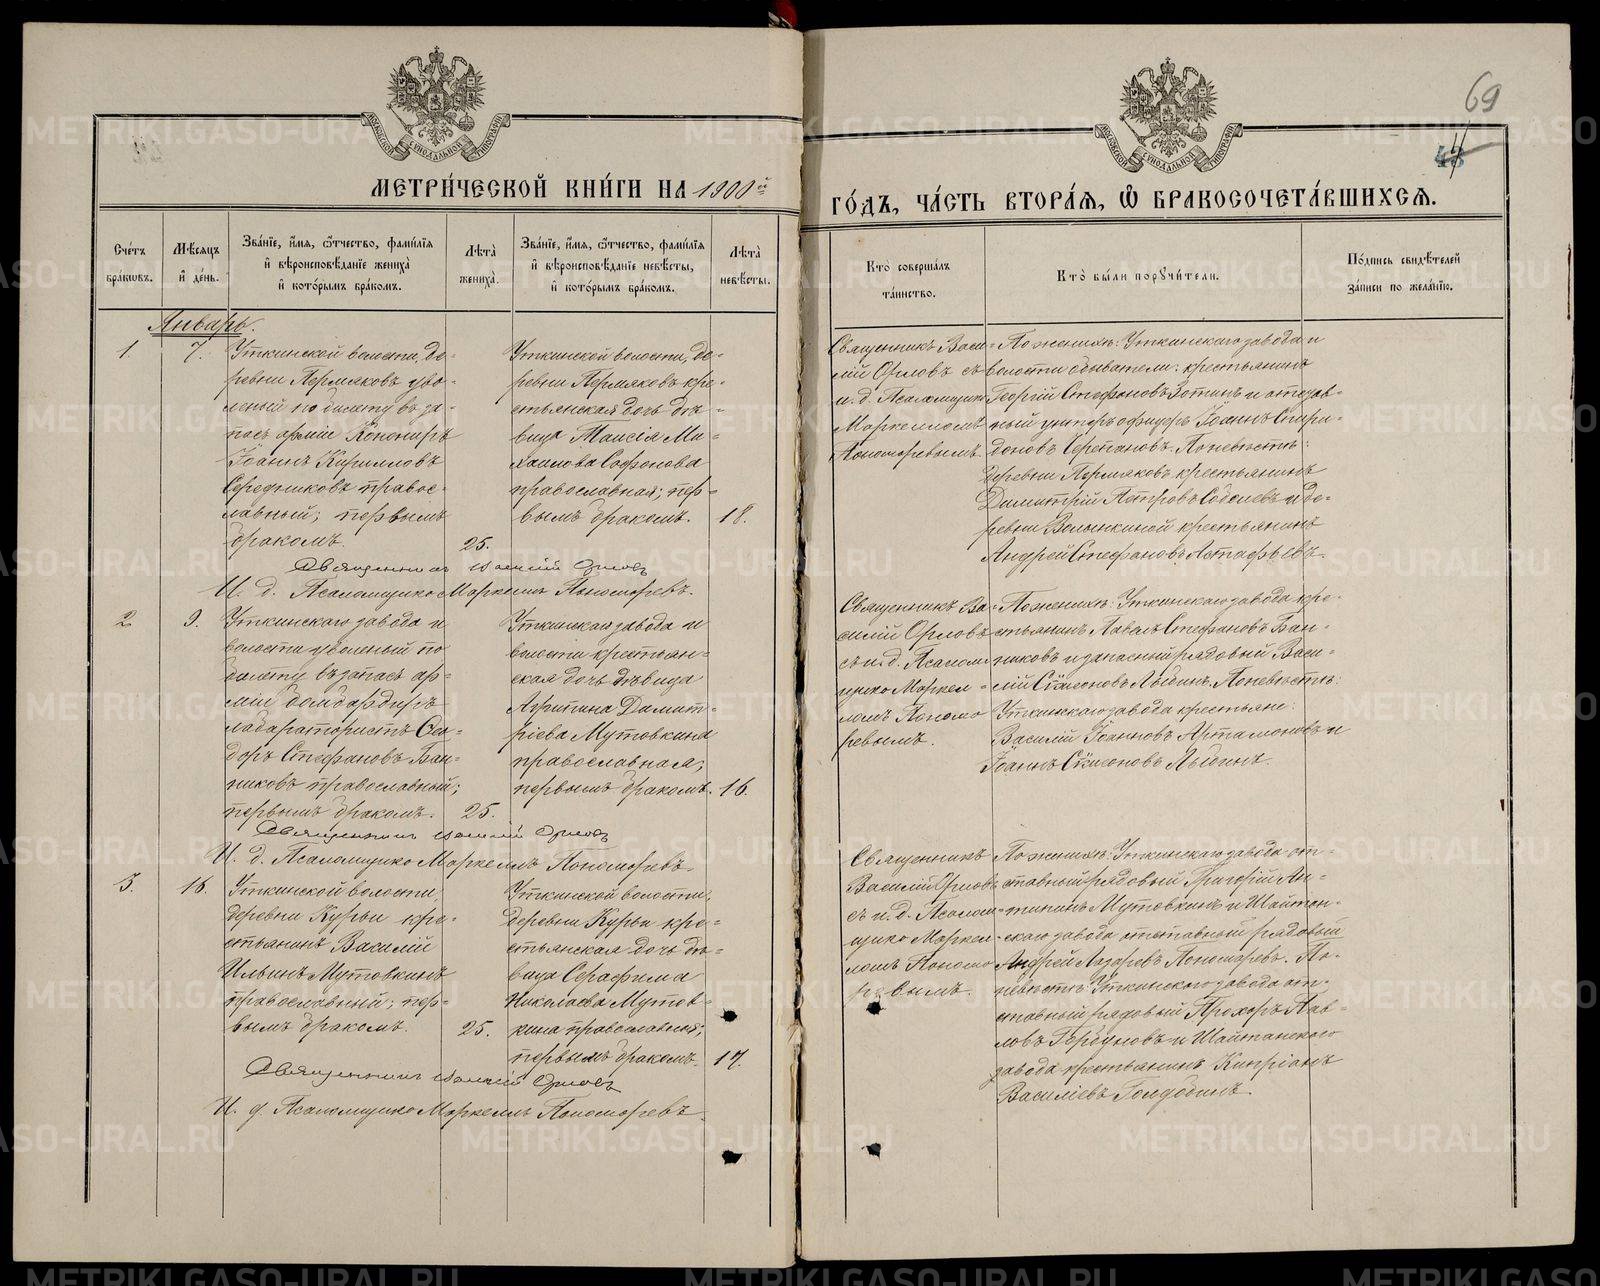 69
43
МОСКОВСКОЙ СѴНОДАЛЬНОЙ ТИПОГРАФІИ
МОСКОВСКОЙ СѴНОДАЛЬНОЙ ТИПОГРАФІИ
МЕТРИ́ЧЕСКОЙ КНИ́ГИ НА 1900й
ГО́ДЪ, ЧА́СТЬ ВТОРА́Я, Ѽ БРАКОСОЧЕТА́ВШИХСЯ.
Сче́тъ бра́ковъ.
Мѣ́сяцъ и҆ де́нь.
Зва́нїе, и҆́мя, ѻ҆́тчество, фами́лїя и҆ вѣроисповѣ́данїе жениха̀ и҆ кото́рымъ бра́комъ.
Лѣ́та жениха̀.
Зва́нїе, и҆́мя, ѻ҆́тчество, фами́лїя и҆ вѣроисповѣ́данїе невѣ́сты, и҆ кото́рымъ бра́комъ.
Лѣ́та невѣ́сты.
Кто̀ соверша́лъ та́инство.
Кто̀ бы́ли поручи́тели.
По́дпись свидѣ́телей за́писи по жела́нїю.
Январь.
1.
7.
Уткинской волости, де-
ревни Пермяковъ уво-
леный по билету въ за-
пасъ арміи Канониръ
Іоаннъ Кирилловъ
Середниковъ правос-
лавный; первымъ
бракомъ.
25.
Уткинской волости, де-
ревни Пермяковъ кре-
стьянская дочь дѣ-
вица Таисія Ми-
хаилова Софонова
православная; пер-
вымъ бракомъ.
18.
Священникъ Васи-
лій Орловъ съ
и. д. Псаломщика
Маркелломъ
Пономаревымъ.
По женихѣ: Уткинскаго завода и
волости обыватели: крестьянинъ
Георгій Стефановъ Зотинъ и отстав-
ный унтеръ офицеръ Іоаннъ Спири-
доновъ Серебановъ. По невѣстѣ:
деревни Пермяковъ крестьянинъ
Димитрій Петровъ Соболевъ и де-
ревни Волынкиной крестьянинъ
Андрей Стефановъ Астафьевъ.
Священникъ Василій Орловъ
И. д. Псаломщика Маркеллъ Пономаревъ.
2
9.
Уткинскаго завода и
волости уволеный по
билету въ запасъ ар-
міи бомбардиръ
лаборатористъ Ѳео-
доръ Стефановъ Бан-
никовъ православный;
первымъ бракомъ.
25.
Уткинскаго завода и
волости крестьян-
ская дочь дѣвица
Агрипина Димит-
ріева Мутовкина
православная;
первымъ бракомъ.
16.
Священникъ Ва-
силій Орловъ
съ и. д. Псалом-
щика Маркел-
ломъ Пономо
ревымъ.
По женихѣ: Уткинскаго завода кре-
стьянинъ Павелъ Стефановъ Бан-
никовъ и запасный рядовый Васи-
лій Сѵмеоновъ Лыбинъ. По невѣстѣ:
Уткинскаго завода крестьяне:
Василій Іоанновъ Артамоновъ и
Іоаннъ Сѵмеоновъ Лыбинъ.
Священникъ Василій Орловъ
И. д. Псаломщика Маркеллъ Пономаревъ.
3.
16.
Уткинской волости,
деревни Курьи кре-
стьянинъ Василій
Ильинъ Мутовкинъ
православный; пер-
вымъ бракомъ.
25.
Уткинской волости,
деревни Курьи кре-
стьянская дочь дѣ-
вица Серафима
Николаева Мутов-
кина православная;
первымъ бракомъ.
17.
Священникъ
Василій Орловъ
съ и. д. Псалом-
щика Маркел-
ломъ Пономо
ревымъ.
По женихѣ: Уткинскаго завода от-
ставный рядовый Григорій Ан-
типинъ Мутовкинъ и Шайтан-
скаго завода отставный рядовый
Андрей Лазаревъ Пономаревъ. По
невѣстѣ: Уткинскаго завода от-
ставный рядовый Прохоръ Пав-
ловъ Горбуновъ и Шайтанскаго
завода крестьянинъ Кипріанъ
Василіевъ Голдобинъ.
Священникъ Василій Орловъ
И. д. Псаломщика Маркеллъ Пономаревъ.
METRIKI.GASO-URAL.RU